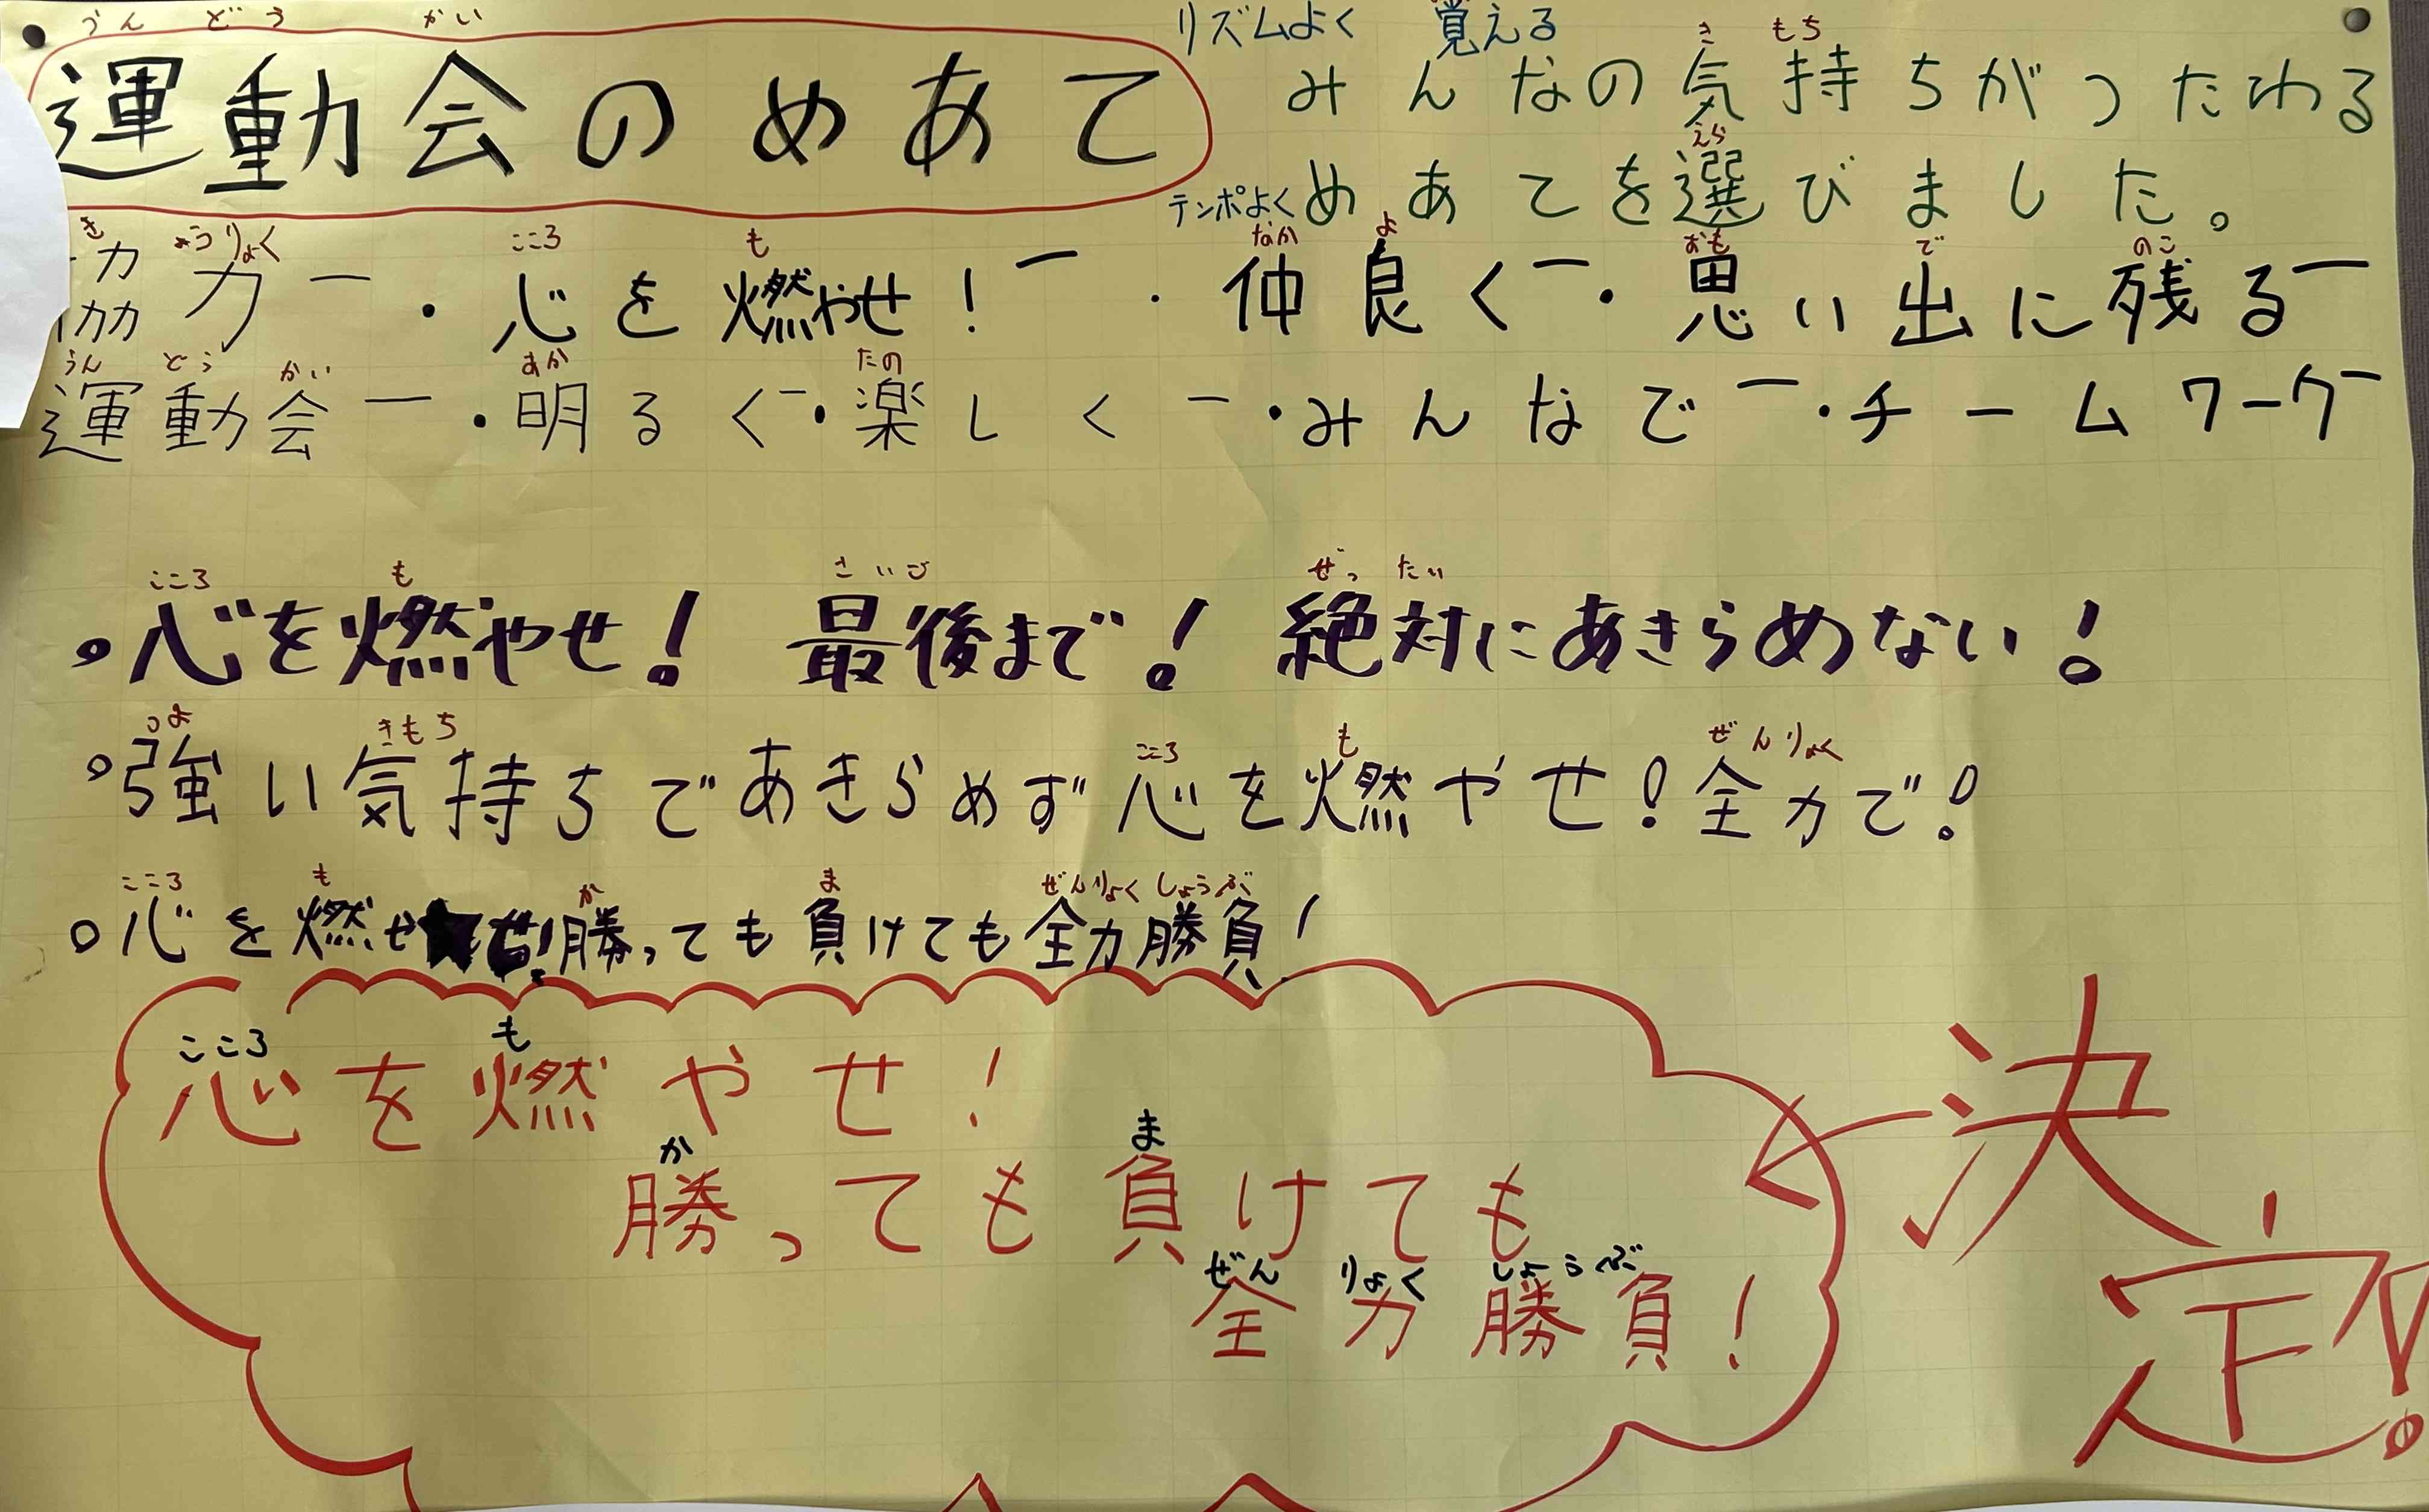 うんどうかい
運動会のめあて
リズムよく 覚える
き もち
みんなの気持ちがつたわる
えら
テンポよく めあてを選びました。
きょうりょく こころ も なか よ おも で のこ
協力ー・心を燃やせ!ー ・仲良くー・思い出に残るー
うん どう かい あか たの
運動会ー・明るくー・楽しくー・みんなでー・チームワークー
こころ も さいご ぜったい
。心を燃やせ! 最後まで! 絶対にあきらめない!
つよ きもち こころ も ぜんりょく
。強い気持ちであきらめず心を燃やせ!全力で!
こころ も か ま ぜんりょくしょうぶ
。心を燃やせ!勝っても負けても全力勝負!
こころ も
心を燃やせ!
か ま
勝っても負けても
ぜん りょく しょうぶ
全力勝負!
決定!